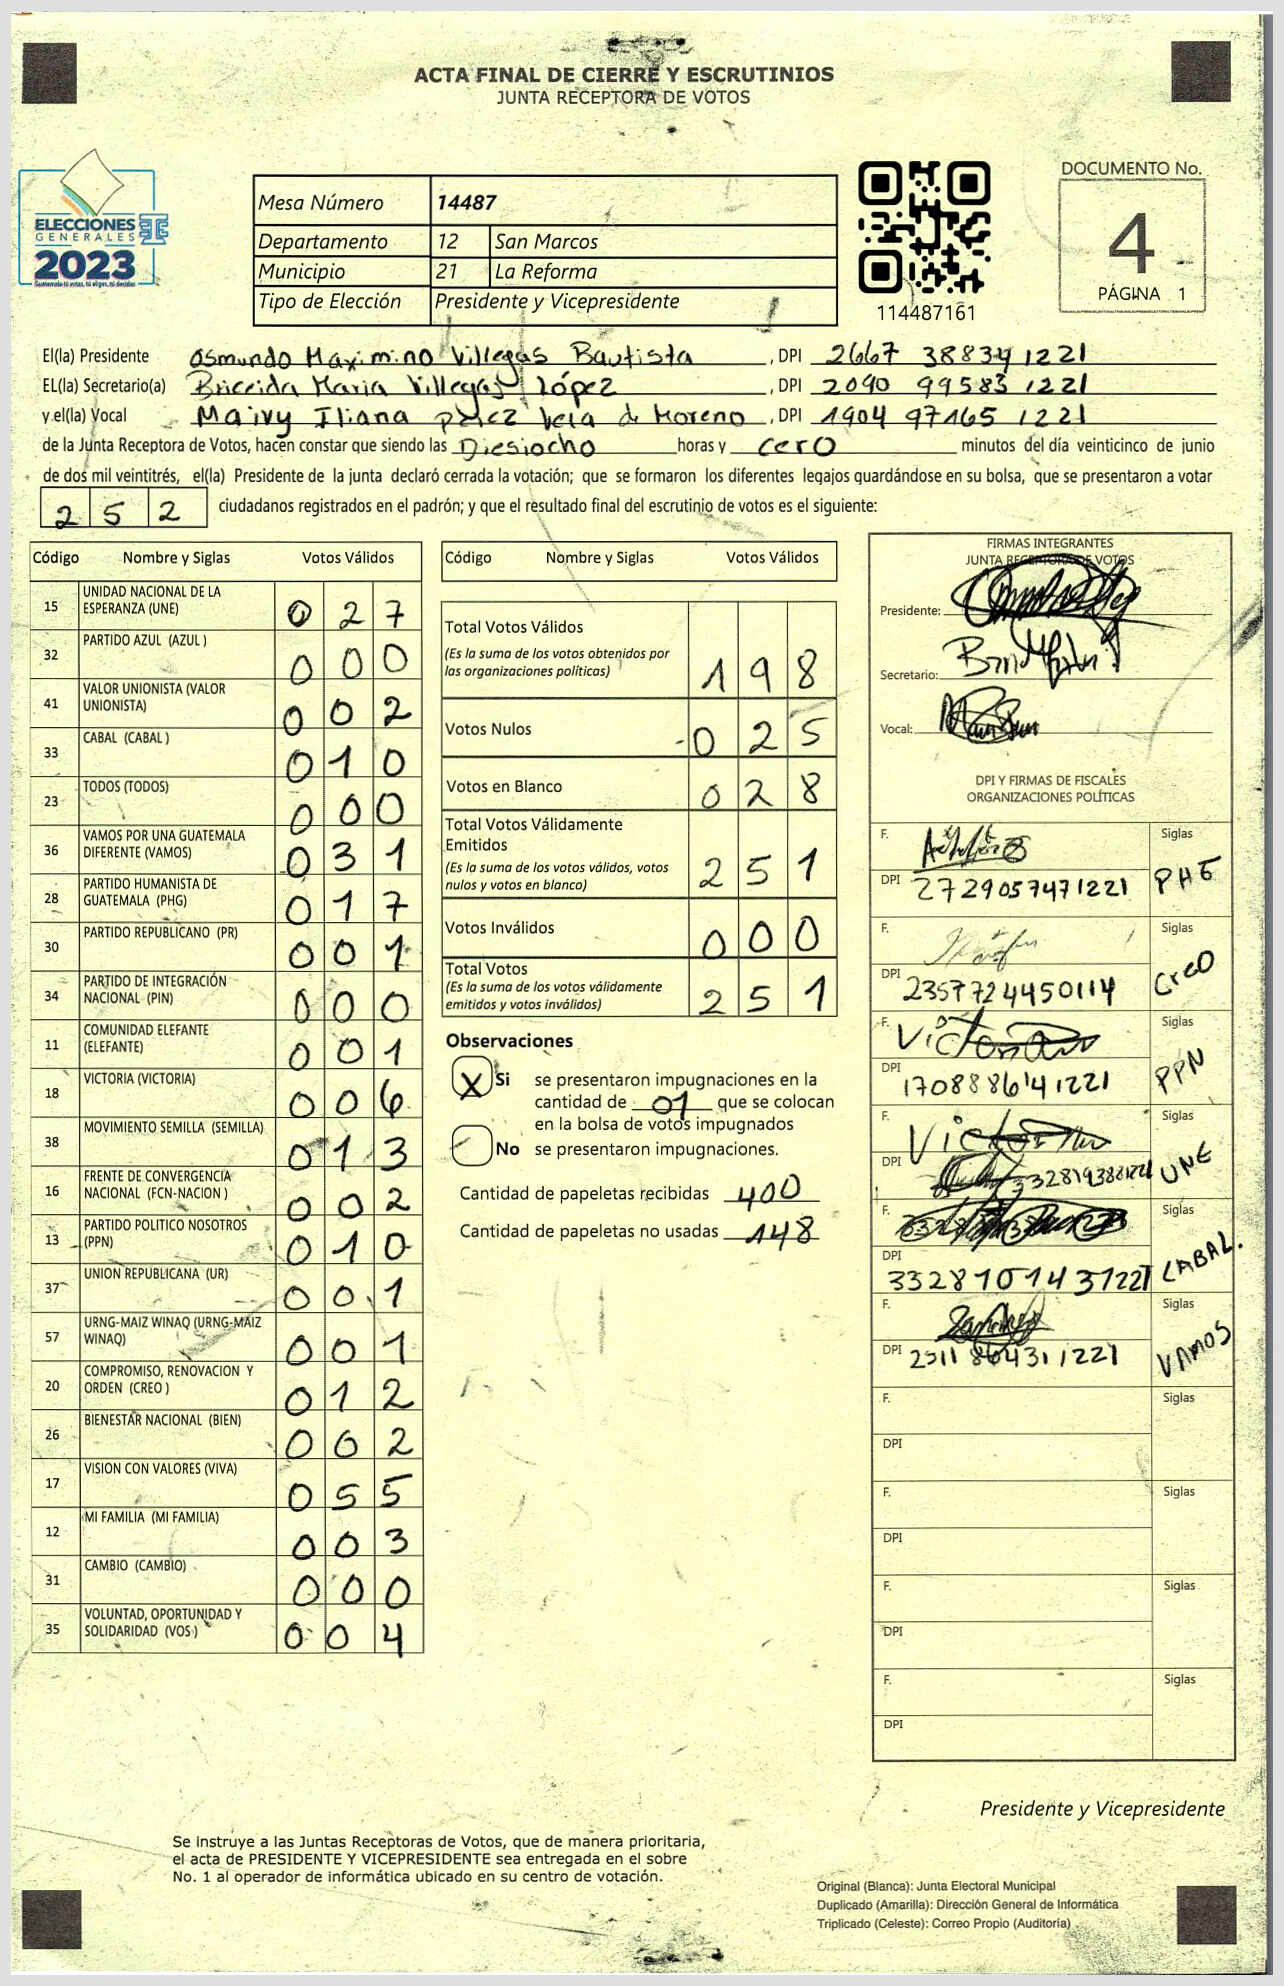 ACTA FINAL DE CIERRE Y ESCRUTINIOS
JUNTA RECEPTORA DE VOTOS
ELECCIONES
GENERALES
2023
Guatemala tú votas, tú eliges, tú decides
Mesa Número 14487
Departamento 12 San Marcos
Municipio 21 La Reforma
Tipo de Elección Presidente y Vicepresidente
114487161
DOCUMENTO No.
4
PÁGINA 1
El(la) Presidente Osmundo Maximino Villegas Bautista, DPI 2667 38834 1221
EL(la) Secretario(a) Briceida Maria Villegas López, DPI 2090 99583 1221
y el(la) Vocal Maivy Iliana perez Vela de Moreno, DPI 1904 97165 1221
de la Junta Receptora de Votos, hacen constar que siendo las Diesiocho horas y cero minutos del día veinticinco de junio
de dos mil veintitrés, el(la) Presidente de la junta declaró cerrada la votación; que se formaron los diferentes legajos guardándose en su bolsa, que se presentaron a votar
252 ciudadanos registrados en el padrón; y que el resultado final del escrutinio de votos es el siguiente:
Código Nombre y Siglas Votos Válidos
15 UNIDAD NACIONAL DE LA ESPERANZA (UNE) 027
32 PARTIDO AZUL (AZUL ) 000
41 VALOR UNIONISTA (VALOR UNIONISTA) 002
33 CABAL (CABAL ) 010
23 TODOS (TODOS) 000
36 VAMOS POR UNA GUATEMALA DIFERENTE (VAMOS) 031
28 PARTIDO HUMANISTA DE GUATEMALA (PHG) 017
30 PARTIDO REPUBLICANO (PR) 001
34 PARTIDO DE INTEGRACIÓN NACIONAL (PIN) 000
11 COMUNIDAD ELEFANTE (ELEFANTE) 001
18 VICTORIA (VICTORIA) 006
38 MOVIMIENTO SEMILLA (SEMILLA) 013
16 FRENTE DE CONVERGENCIA NACIONAL (FCN-NACION ) 002
13 PARTIDO POLITICO NOSOTROS (PPN) 010
37 UNION REPUBLICANA (UR) 001
57 URNG-MAIZ WINAQ (URNG-MAIZ WINAQ) 001
20 COMPROMISO, RENOVACION Y ORDEN (CREO ) 012
26 BIENESTAR NACIONAL (BIEN) 002
17 VISION CON VALORES (VIVA) 055
12 MI FAMILIA (MI FAMILIA) 003
31 CAMBIO (CAMBIO) 000
35 VOLUNTAD, OPORTUNIDAD Y SOLIDARIDAD (VOS ) 004
Código Nombre y Siglas Votos Válidos
Total Votos Válidos 198
(Es la suma de los votos obtenidos por
las organizaciones políticas)
Votos Nulos 025
Votos en Blanco 028
Total Votos Válidamente
Emitidos 251
(Es la suma de los votos válidos, votos
nulos y votos en blanco)
Votos Inválidos 000
Total Votos 251
(Es la suma de los votos válidamente
emitidos y votos inválidos)
Observaciones
X Si se presentaron impugnaciones en la
cantidad de 01 que se colocan
en la bolsa de votos impugnados
No se presentaron impugnaciones.
Cantidad de papeletas recibidas 400
Cantidad de papeletas no usadas 148
FIRMAS INTEGRANTES
JUNTA RECEPTORA DE VOTOS
Presidente:
Secretario:
Vocal:
DPI Y FIRMAS DE FISCALES
ORGANIZACIONES POLÍTICAS
F. Siglas
DPI 2729057471221 PHG
F. Siglas
DPI 2357724450114 CreO
F. Siglas
DPI 1708886141221 PPN
F. Siglas
DPI 3328193881221 UNE
F.
DPI 3328101431221 CABAL.
F. Siglas
DPI 2511864311221 VAMOS
F. Siglas
DPI
F. Siglas
DPI
F. Siglas
DPI
F. Siglas
DPI
Presidente y Vicepresidente
Se instruye a las Juntas Receptoras de Votos, que de manera prioritaria,
el acta de PRESIDENTE Y VICEPRESIDENTE sea entregada en el sobre
No. 1 al operador de informática ubicado en su centro de votación.
Original (Blanca): Junta Electoral Municipal
Duplicado (Amarilla): Dirección General de Informática
Triplicado (Celeste): Correo Propio (Auditoría)